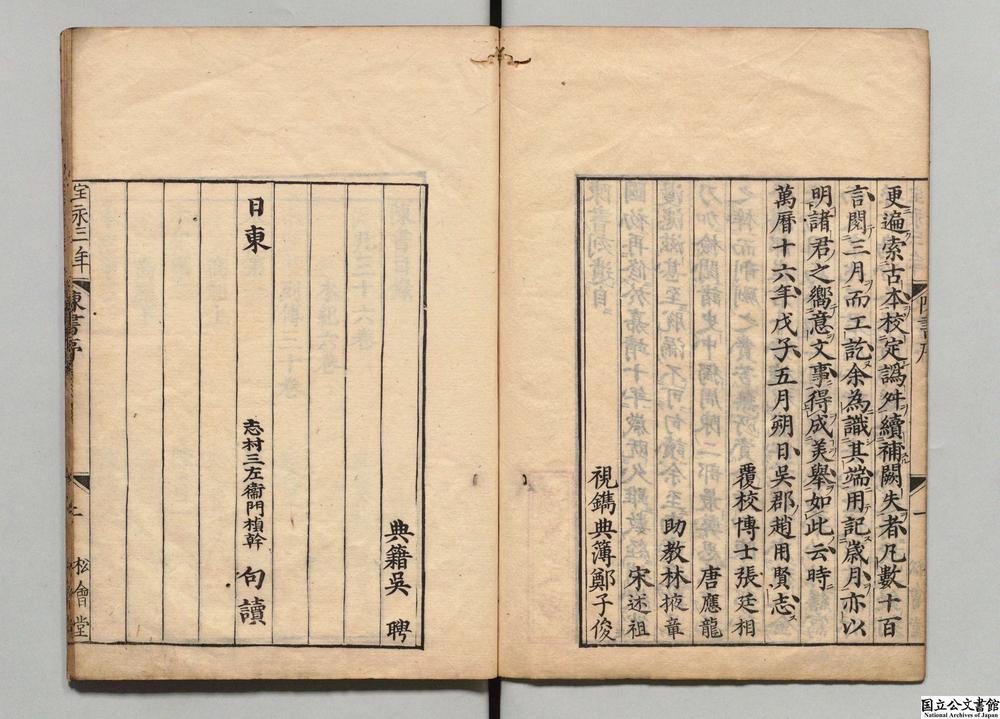 更遍索古本校定譌舛續補闕失者凡數十百
言閱三月而工訖余為識其端用記歲月亦以
明諸君之嚮意文事得成美舉如此云時
萬曆十六年戊子五月朔日吳郡趙用賢志
覆校博士張廷相
唐應龍
助教林掖章
宋述祖
視鐫典簿鄭子俊
典籍吳 聘
日東 志村三左衞門楨幹 句讀
寳永三年 陳書序 二 松會堂
国立公文書館
National Archives of Japan